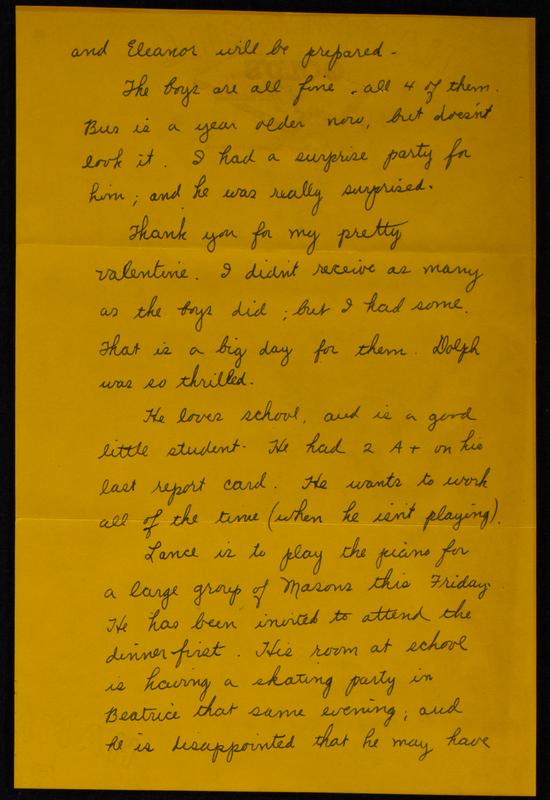 and Eleanor will be prepared -
The boys are all fine - all 4 of them.
Bus is a year older now, but doesn't
look it. I had a surprise party for
him; and he was really surprised.
Thank you for my pretty
valentine. I didn't receive as many
as the boys did; but I had some.
That is a big day for them. Dolph
was so thrilled.
He loves school, and is a good
little student. He had 2 A+ on his
last report card. He wants to work
all of the time (when he isn't playing).
Lance is to play the piano for
a large group of Masons this Friday.
He has been invited to attend the
dinner first. His room at school
is having a skating party in
Beatrice that same evening; and
he is disappointed that he may have